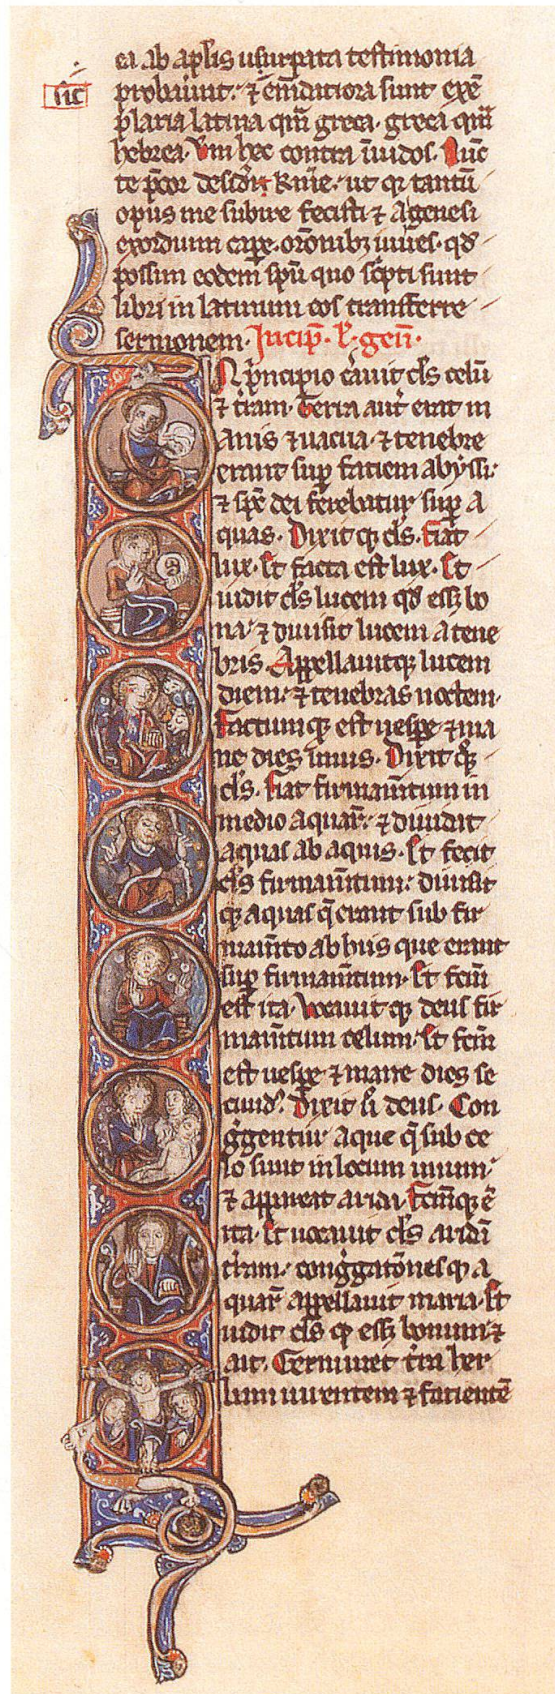 ea ab aplis usurpata testimonia
sic
probauīnt: ⁊ em̄datiora sunt exē
plaria latina qm̄ greca. greca qm̄
hebrea. Vm hec contra īuidos. Nūc
te p̄cor desid̄i kme. ut q̄ tantū
opus me subire fecisti ⁊ a genesi
exordium cape. orōnibꝫ iuues. qd̄
possim eodem sp̄u quo sc̄pti sunt
libri in latinum eos transferre
sermonem. Incip̄. l̄. gen̄.
N p̄ncipio c̄auit d̄s celū
⁊ t̄ram. Terra aut̄ erat in
anis ⁊ uacua. ⁊ tenebre
erant sup̄ faciem abyssi.
⁊ sp̄c dei ferebatur sup̄ a
quas. Dixit q̄ d̄s. Fiat
lux. Et facta est lux. Et
uidit d̄s lucem qd̄ essꝫ bo
na. ⁊ diuisit lucem a tene
bris. Appellauitq̄ lucem
diem. ⁊ tenebras noctem.
Factumq̄ est uesp̄e ⁊ ma
ne dies unus. Dixit q̄
d̄s. Fiat firmam̄tum in
medio aquar̄. ⁊ diuidat
aquas ab aquis. Et fecit
d̄s firmam̄tum. diuisit
q̄ aquas q̄ erant sub fir
mam̄to ab hiis que erant
sup̄ firmam̄tum. Et fc̄m
est ita. Vocauit q̄ deus fir
mam̄tum celum. Et fc̄m
est uesp̄e ⁊ mane dies se
cund. Dixit ū deus. Con
g̊gentur aque q̄ sub ce
lo sunt in locum unum.
⁊ appareat arida. Fc̄mq̄ ē
ita. Et uocauit d̄s aridā
t̄ram. cong̊gatōnesq̄ a
quar̄ appellauit maria. Et
uidit d̄s q̄ essꝫ bonum. ⁊
ait. Germinet t̄ra her
bam uirentem ⁊ facientē